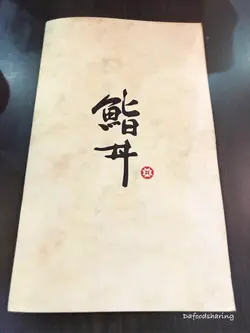 鮨丼
Dafoodsharing